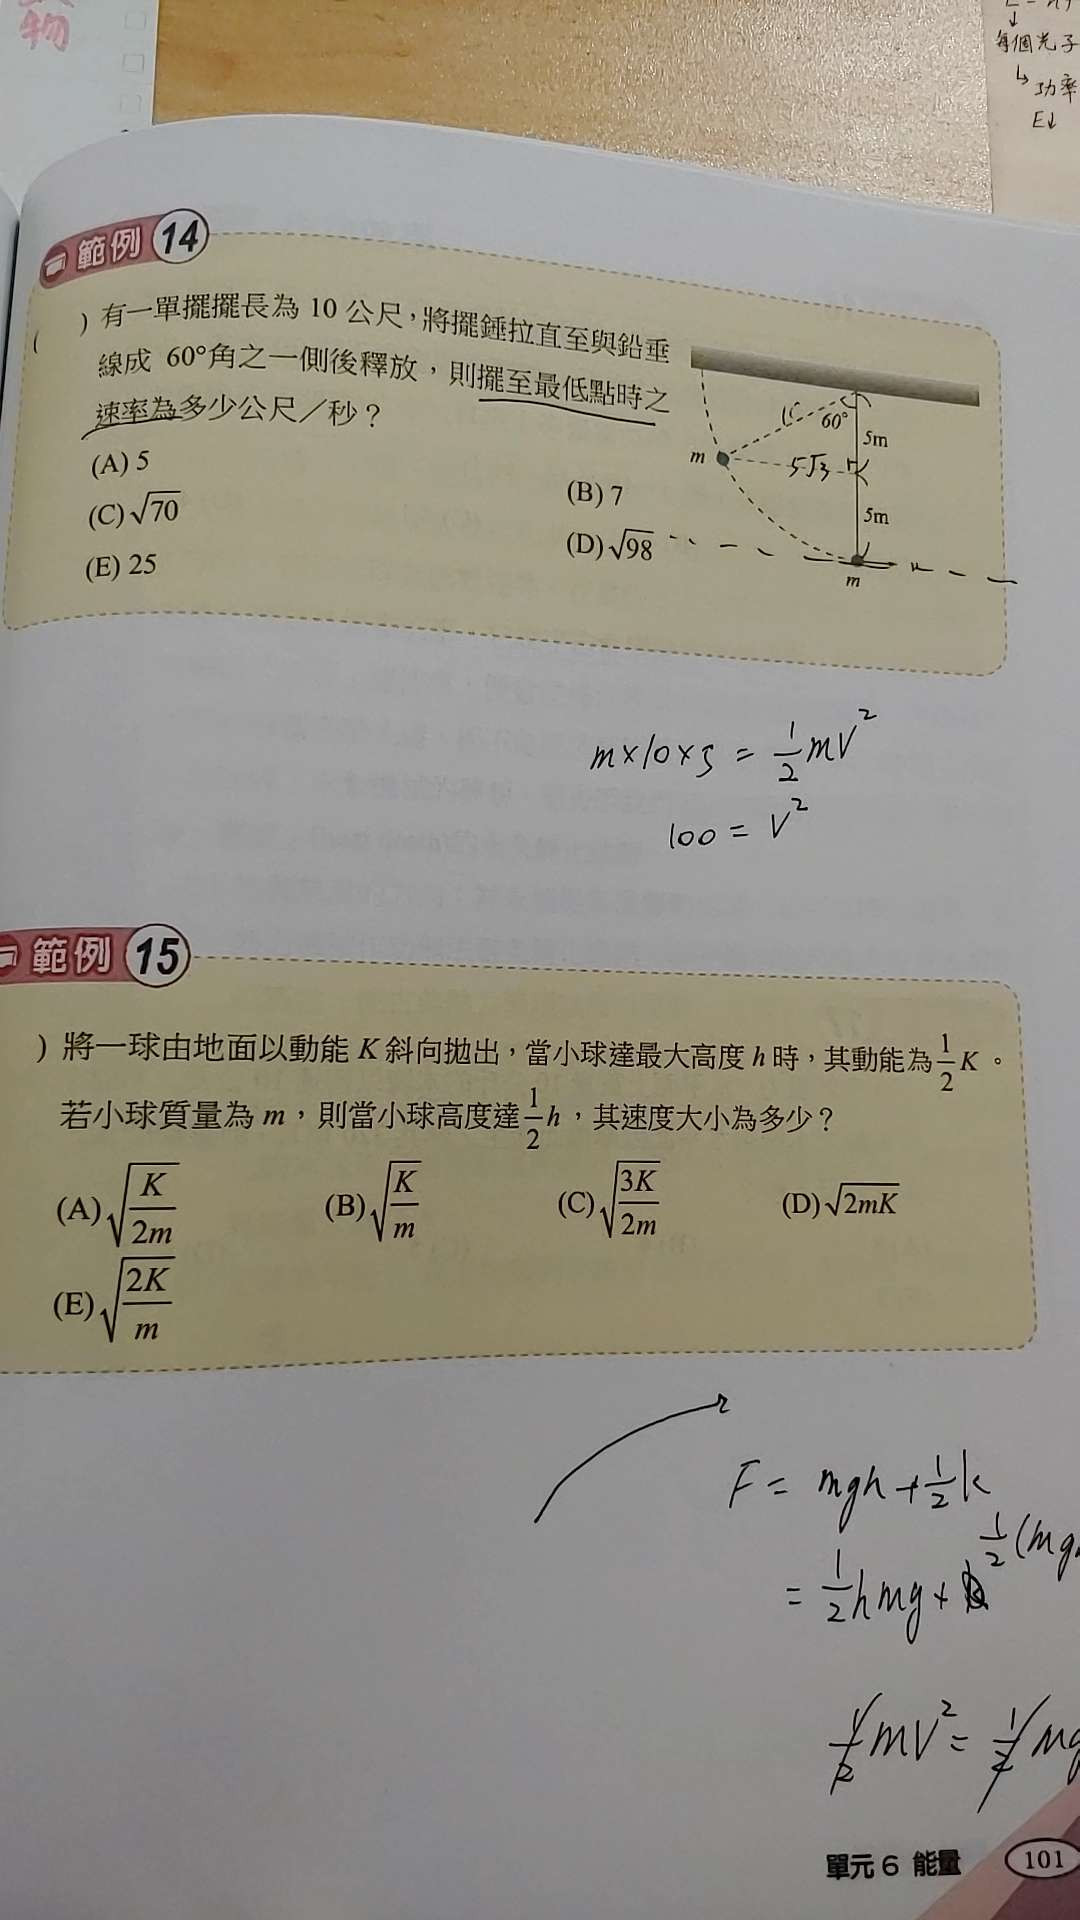 物
每個光子
↳ 功率
E↓
範例 14
( ) 有一單擺擺長為 10 公尺，將擺錘拉直至與鉛垂
線成 60°角之一側後釋放，則擺至最低點時之
速率為多少公尺／秒？
(A) 5
(B) 7
(C) √70
(D) √98
(E) 25
60°
5m
m
5√3
5m
m
m×10×5 = 1/2 mV²
100 = V²
範例 15
) 將一球由地面以動能 K 斜向拋出，當小球達最大高度 h 時，其動能為 1/2 K。
若小球質量為 m，則當小球高度達 1/2 h，其速度大小為多少？
(A) √(K/2m) (B) √(K/m) (C) √(3K/2m) (D) √2mK
(E) √(2K/m)
F = mgh + 1/2 k
1/2 (mg
= 1/2 hmg +
1/2 mV² = 1/2 mg
單元 6 能量 101